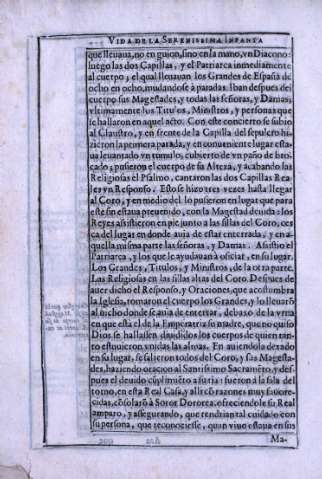 VIDA DE LA SERENISSIMA INFANTA
que lleuaua, no en guion, sino en la mano, vn Diacono:
luego las dos Capillas, y el Patriarca inmediamente
al cuerpo, el qual lleuauan los Grandes de España de
ocho en ocho, mudandose à paradas. Iban despues del
cuerpo sus Magestades, y todas las señoras, y Damas;
vltimamente los Titulos, Ministros, y personas que
se hallaron en aquel acto. Con este concierto se subio
al Claustro, y en frente de la Capilla del sepulcro hi-
zieron la primera parada, y en conueniente lugar esta-
ua leuantado vn tumulo, cubierto de vn paño de bro-
cado; pusieron el cuerpo de su Alteza, y acabando las
Religiosas el Psalmo, cantaron las dos Capillas Rea-
les vn Responso. Esto se hizo tres vezes hasta llegar
al Coro, y en medio del lo pusieron en lugar que para
este fin estaua preuenido, con la Magestad deuida: los
Reyes assistieron en pie junto a las sillas del Coro, cer-
ca del lugar en donde auia de estar enterrada, y en a-
quella misma parte las señoras, y Damas. Assistio el
Patriarca, y los que le ayudauan à oficiar, en su lugar.
Los Grandes, Titulos, y Ministros, de la otra parte.
Las Religiosas en las sillas altas del Coro. Despues de
auer dicho el Responso, y Oraciones, que acostumbra
la Iglesia, tomaron el cuerpo los Grandes, y lo lleuarõ
al nicho donde se auia de enterrar, debaxo de la vrna
en que està el de la Emperatriz su madre, que no quiso
Dios se hallassen diuididos los cuerpos de quien tan-
to estuuieron vnidas las almas. En auiendola dexado
en su lugar, se salieron todos del Coro, y sus Magesta-
des, haziendo oracion al Santissimo Sacramẽto, y des-
pues el deuido cũplimiẽto à su tia: fueron à la sala del
tomo, en esta Real Casa, y alli cõ razones muy fauore-
cidas, cõsolarõ à Soror Dorotea, ofreciendole su Real
amparo, y assegurando, que tendrian tal cuidado con
su persona, que reconociesse, quan viuo estaua en sus
Ma-